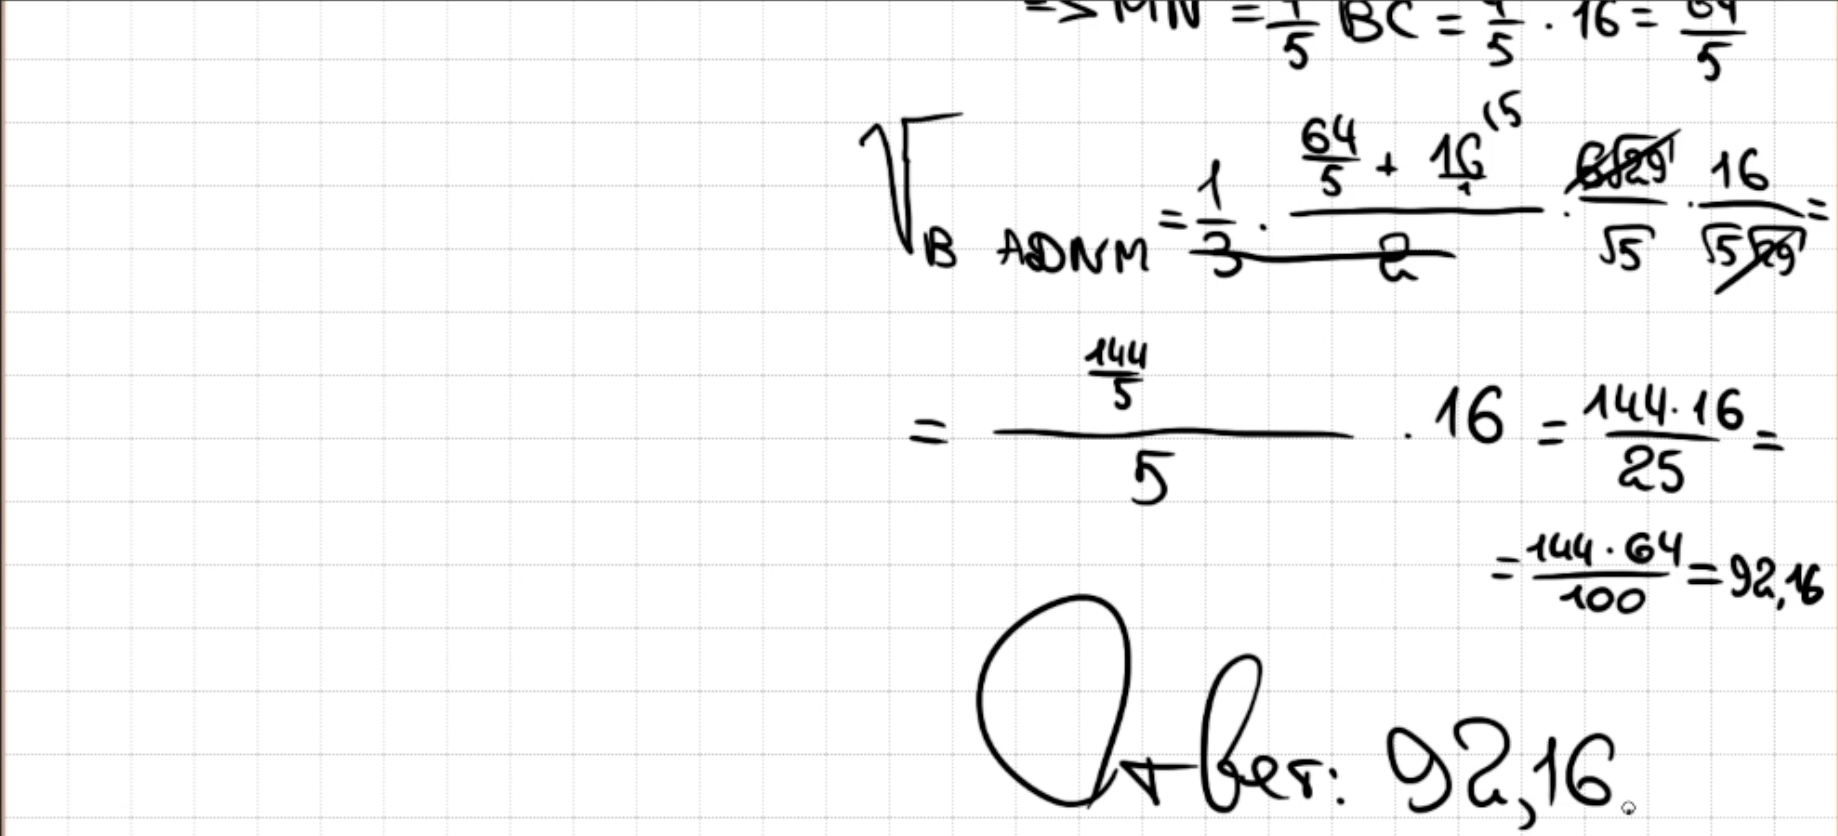 => MN = 4/5 BC = 4/5 · 16 = 64/5
V_B ADNM = 1/3 · (64/5 + 16/1 ^(5)/2 · 6√29/√5 · 16/√5√29 =
= (144/5)/5 · 16 = 144·16/25 =
= 144·64/100 = 92,16
Ответ: 92,16.